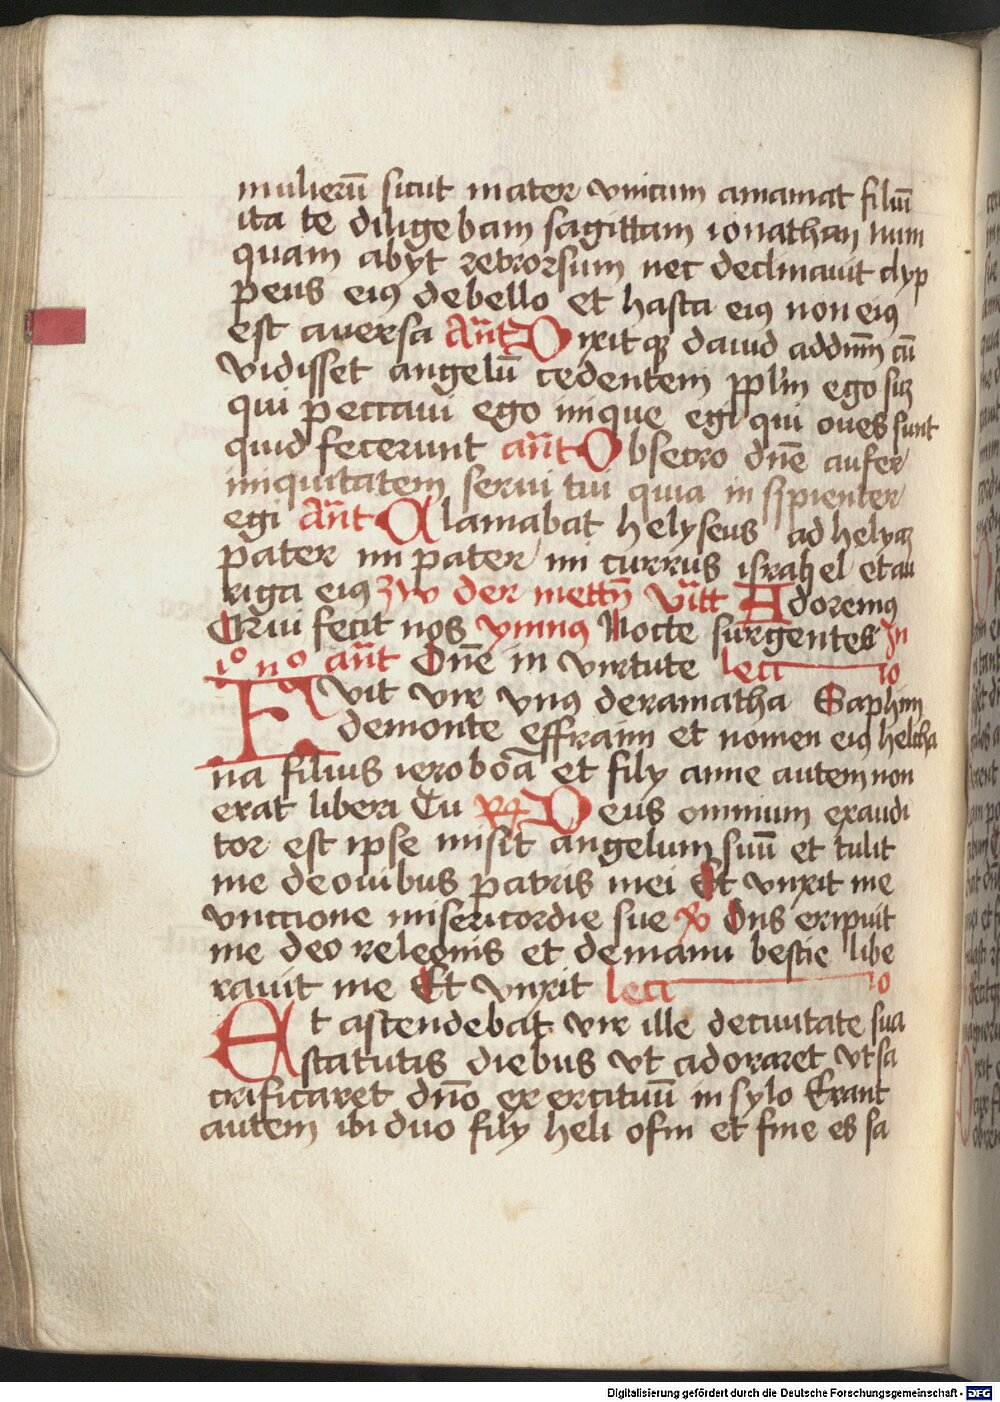 mulierū sicut mater vnicum amamat filiū
ita te diligebam sagittam ionathan num
quam abyt retrorsum nec declinauit clyp
peus eiꝰ debello et hasta eiꝰ non eiꝰ
est auersa Añt Dixit qꝫ dauid addnm̄ cū
vidisset angelū cedentem pplm̄ ego sūꝫ
qui peccaui ego inique egi qui oues sunt
quid fecerunt añt Obsecro dn̄e aufer
iniquitatem serui tui quia in sipienter
egi Añt Clamabat helyseus ad helyaꝫ
pater mi pater mi currus israhel et au
riga eiꝰ zw der mettn̄ Vitt Adoremꝰ
Qui fecit nos ympnꝰ Nocte surgentes In
io no añt Dn̄e in virtute lectio
Fuit vir vnꝰ deramatha Saphim
demonte effraim et nomen eiꝰ helcha
na filius ieroboā et fily anne autem non
erat liberi Tu R̄ Deus omnium exaudi
tor est ipse misit angelum suū et tulit
me deouibus patris mei Et vnxit me
vnccione misericordie sue V̄ Dn̄s eripuit
me deo releonis et demanu bestie libe
rauit me Et vnxit lectio
Et ascendebat vir ille deciuitate sua
statutis diebus vt adoraret vt sa
crificaret dn̄o exercituū in sylo Erant
autem ibi duo fily heli ofni et fine es sa
Digitalisierung gefördert durch die Deutsche Forschungsgemeinschaft - DFG